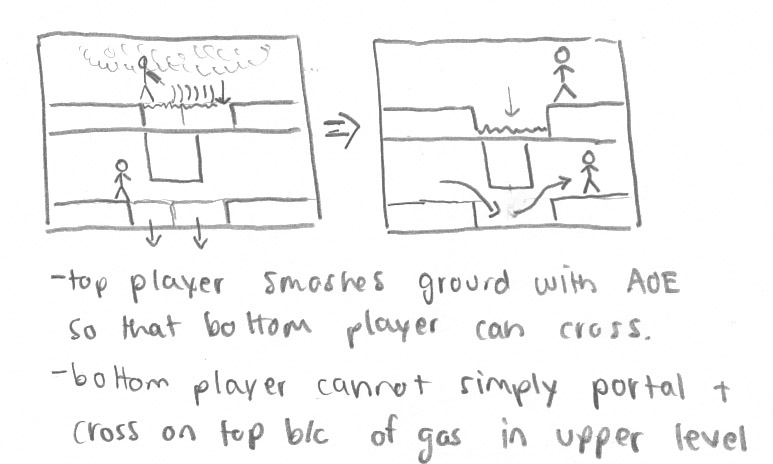 -top player smashes ground with AOE
so that bottom player can cross.
-bottom player cannot simply portal +
cross on top b/c of gas in upper level